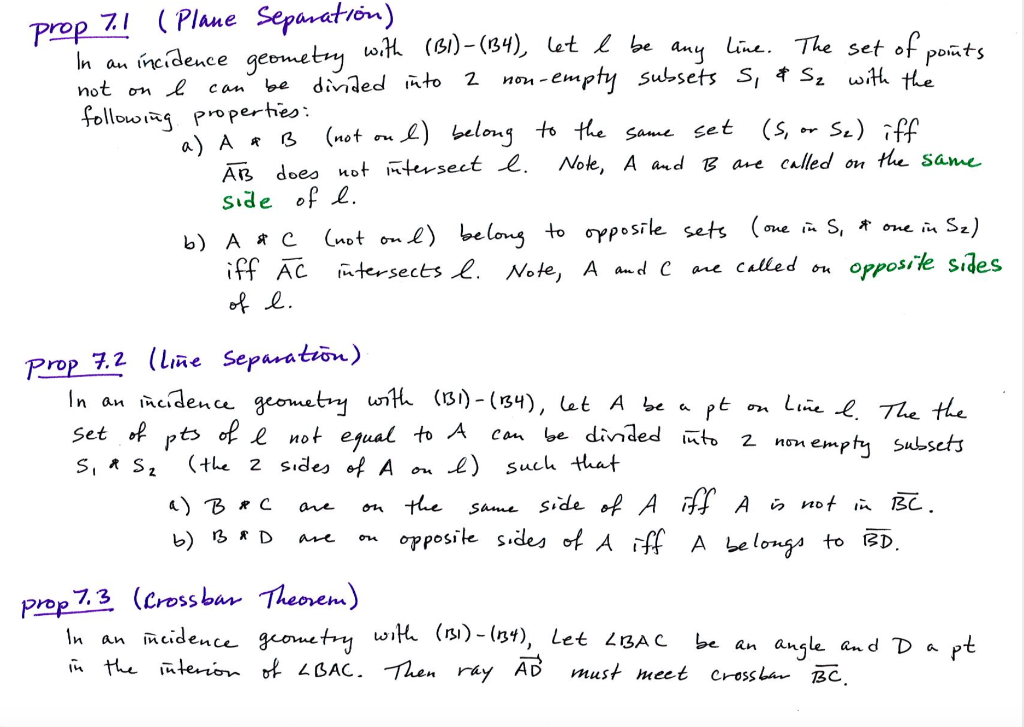 Prop 7.1 (Plane Separation)
In an incidence geometry with (B1)-(B4), let l be any line. The set of points
not on l can be divided into 2 non-empty subsets S₁ & S₂ with the
following properties:
a) A & B (not on l) belong to the same set (S₁ or S₂) iff
A̅B̅ does not intersect l. Note, A and B are called on the same
side of l.
b) A & C (not on l) belong to opposite sets (one in S₁ & one in S₂)
iff A̅C̅ intersects l. Note, A and C are called on opposite sides
of l.
Prop 7.2 (Line Separation)
In an incidence geometry with (B1)-(B4), let A be a pt on Line l. The the
set of pts of l not equal to A can be divided into 2 nonempty subsets
S₁ & S₂ (the 2 sides of A on l) such that
a) B & C are on the same side of A iff A is not in B̅C̅.
b) B & D are on opposite sides of A iff A belongs to B̅D̅.
Prop 7.3 (Crossbar Theorem)
In an incidence geometry with (B1)-(B4), Let ∠BAC be an angle and D a pt
in the interior of ∠BAC. Then ray A⃗D⃗ must meet crossbar B̅C̅.